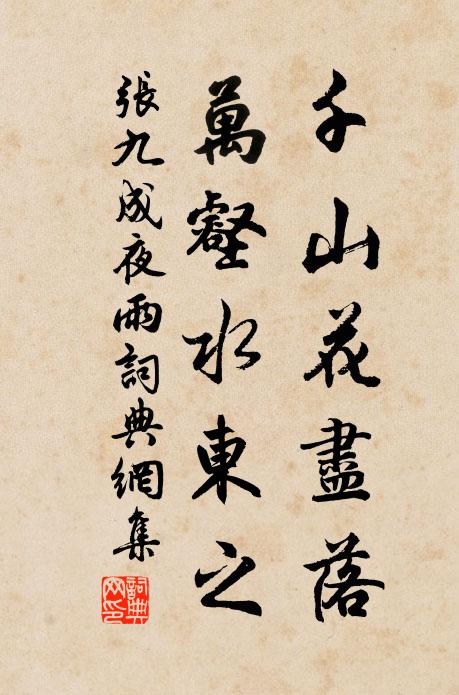 千山花盡落
萬壑水東之
張九成夜雨詞典網集
詞典网印